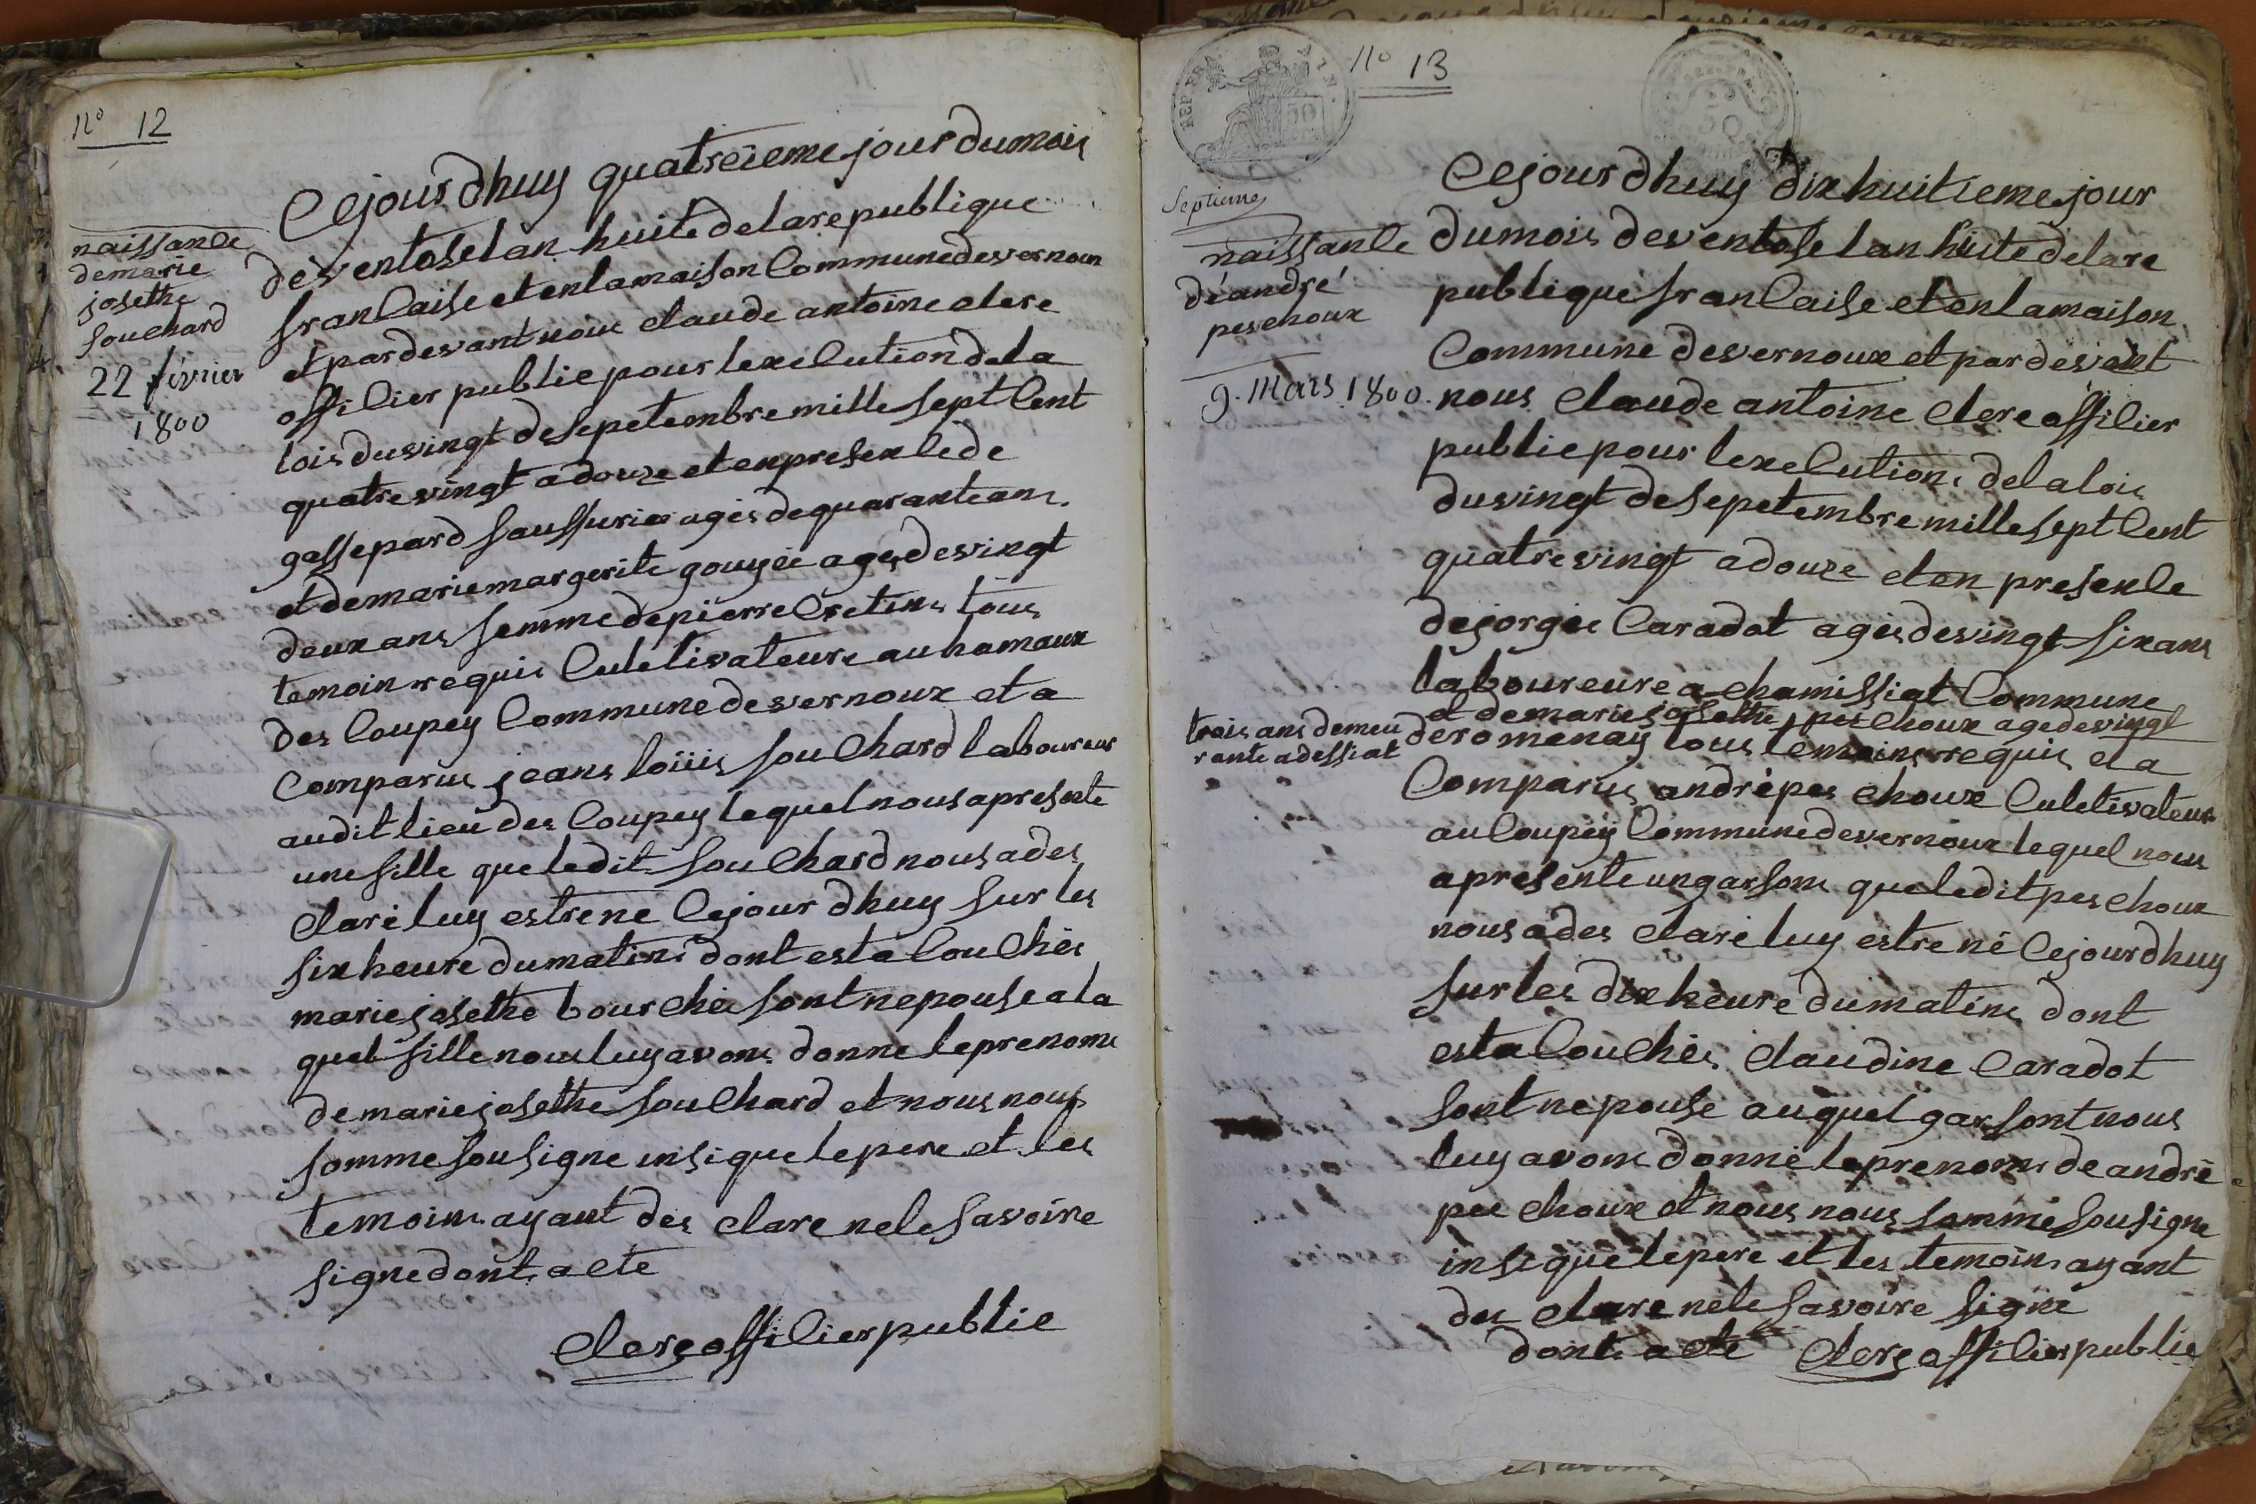 nº 12
naissance
de marie
josethe
souchard
22 février
1800
Cejourdhuy quatreieme jour dumois
deventose lan huite delarepublique
francaise et enlamaison Commune devernoux
et pardevant nous claude antoine clerc
officier public pour lexecution dela
lois duvingt desepetembre mille sept Cent
quatrevingt adouze et en presence de
gassepard saussurier ages dequaranteans
et demariemargerite gouyée ages devingt
deux ans femme depierre Cretins tous
temoin requis Culetivateure auhamaux
des Coupey Commune devernoux et a
Comparus jeans loüis souChard laboureur
audit lieu des Coupey lequel nousapresente
une fille queledit souChard nous ades
claré luy estre ne Cejour dhuy sur les
six heure dumatins dont esta Couchés
mariejosethe bourchés sont nepouse a la
quel fille nous luy avons donne leprenoms
de marie josethe souChard et nous nous
somme sousigne insi que lepere et les
temoins ayant des clare nele savoire
signe dont acte
clerc officier public
nº 13
REP. FRA.
50
Septieme
naissance
de andré
peschoux
9. Mars 1800.
Cejour dhuy dix huitieme jour
dumois deventose lan huite delare
publique francaise et enlamaison
Commune devernoux et pardevant
nous claude antoine clerc officier
public pour lexecution delalois
duvingt desepetembre mille sept Cent
quatrevingt adouze et en presence
dejorges Caradot ages devingt six ans
laboureure a chamissiat Commune
et demarie josethe pes Choux age devingt
trois ans demeu
rante adessiat
deromenay tous temoins requis et a
Comparus andré pes choux Culetivateur
auCoupey Commune devernoux lequel nous
apresente ungarsons queledit peschoux
nous ades claré luy estre né Cejourdhuy
sur les dix heure dumatins dont
esta Couchés claudine Caradot
sont nepouse auquel garsont nous
luy avons donné leprenoms de andré
pes choux et nous nous somme sousigne
insi que lepere et les temoins ayant
des clare nele savoire signé
dont acte clerc officier public